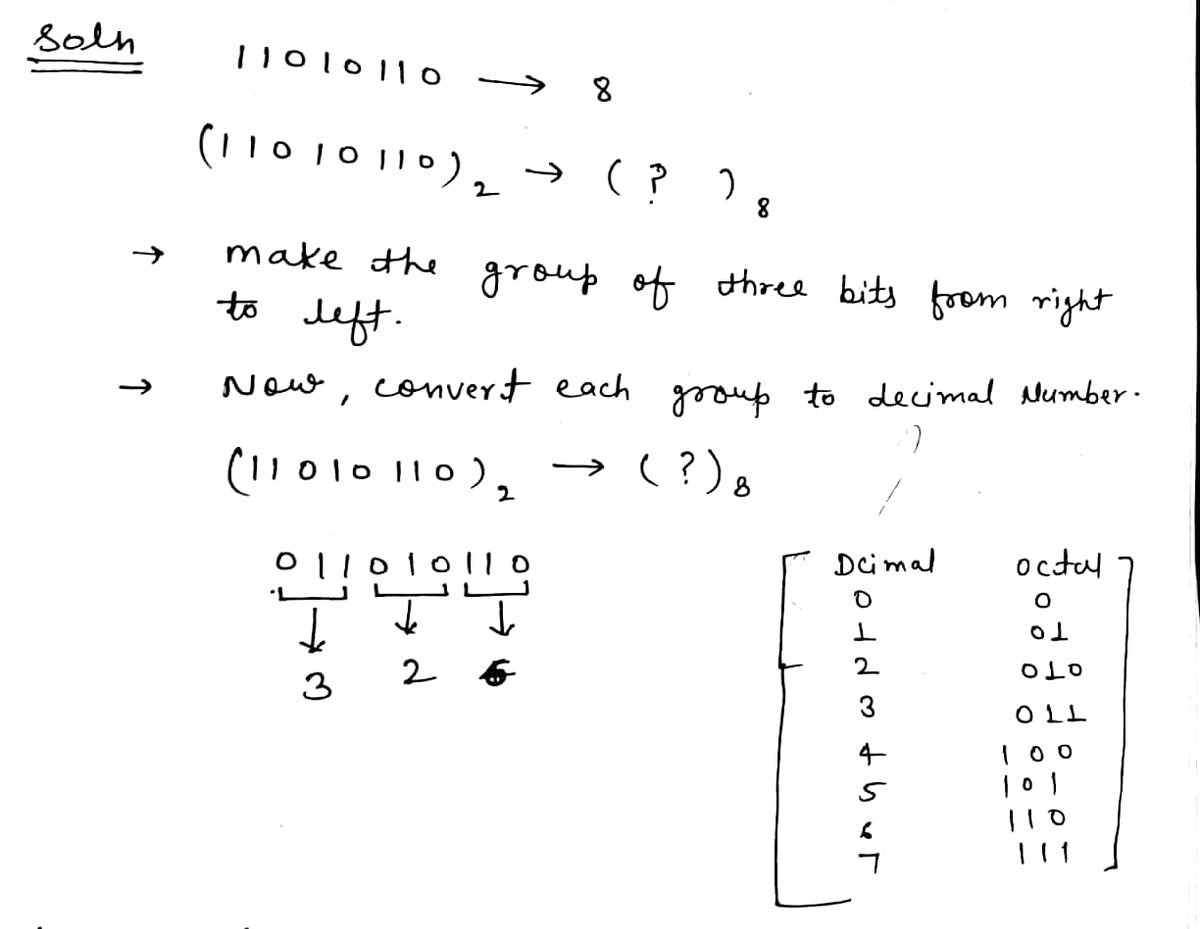 Soln
11010110 → 8
(11010110)2 → ( ? )8
→ make the group of three bits from right
to left.
→ Now, convert each group to decimal Number.
(11010110)2 → (?)8
011010110
3 2 6
Dcimal octal
0 0
1 01
2 010
3 011
4 100
5 101
6 110
7 111